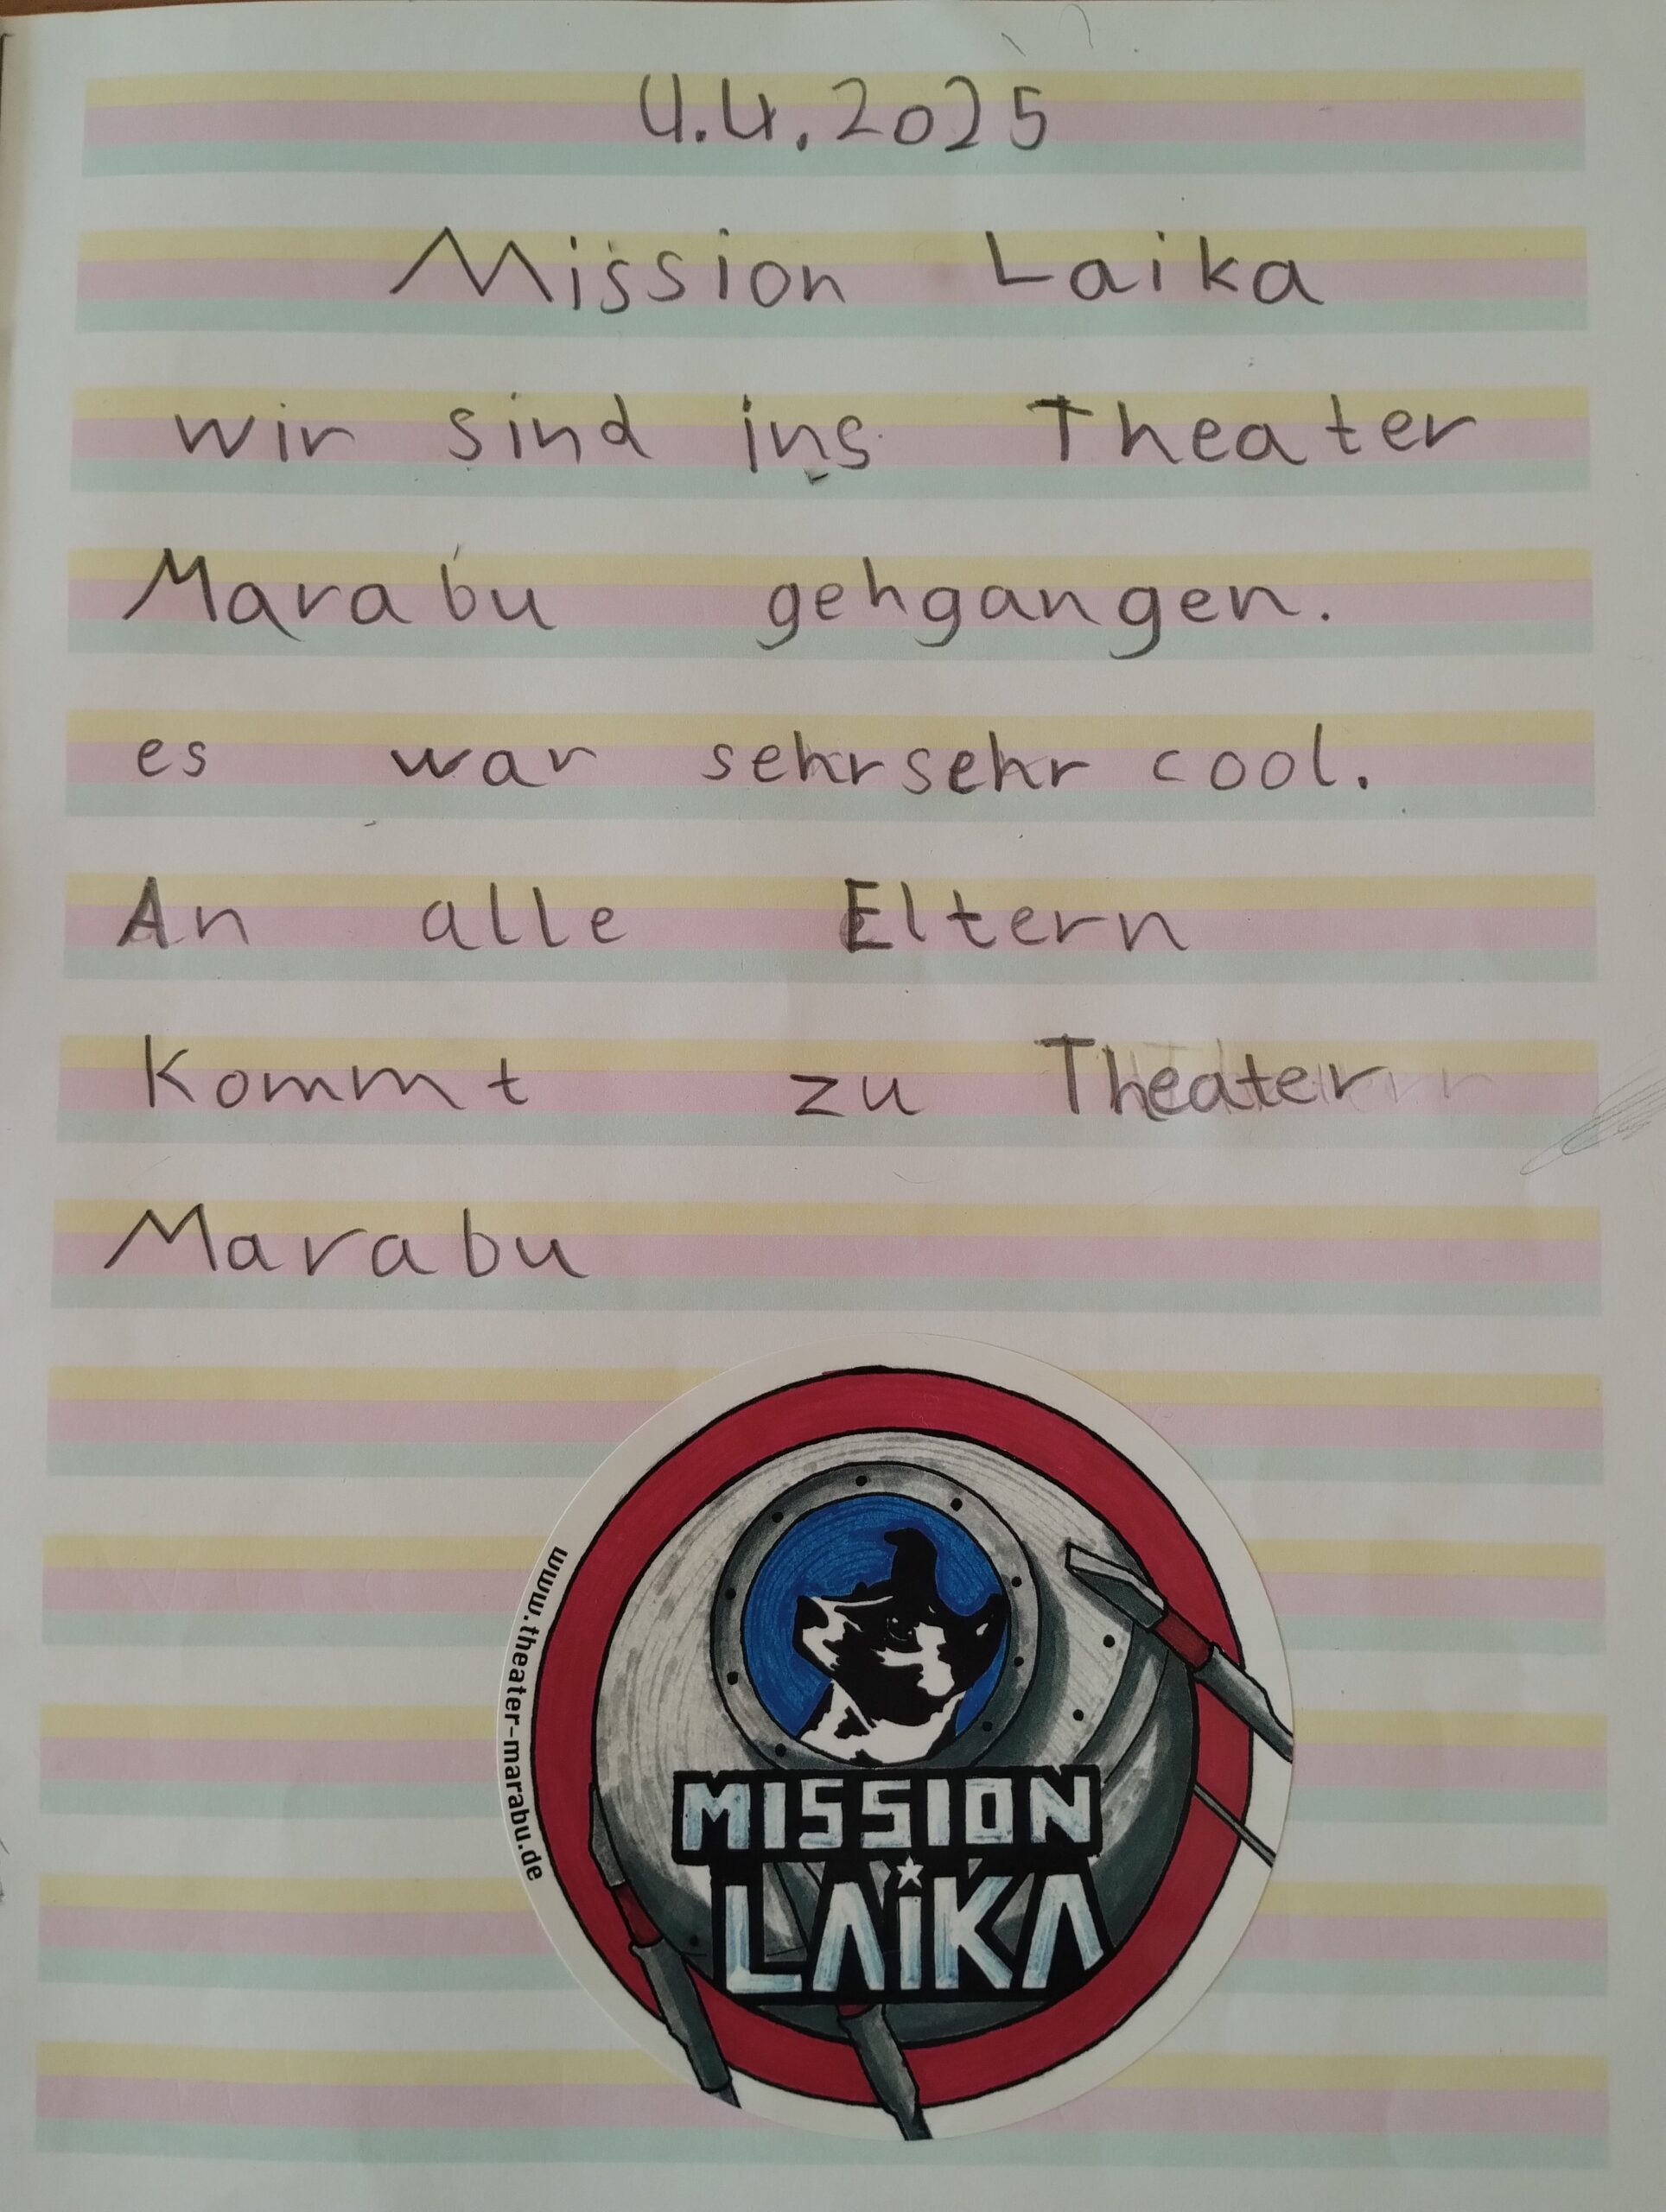 4.4.2025
Mission Laika
wir sind ins Theater
Marabu gehgangen.
es war sehr sehr cool.
An alle Eltern
Kommt zu Theater
Marabu
www.theater-marabu.de
MISSION
LAiKA